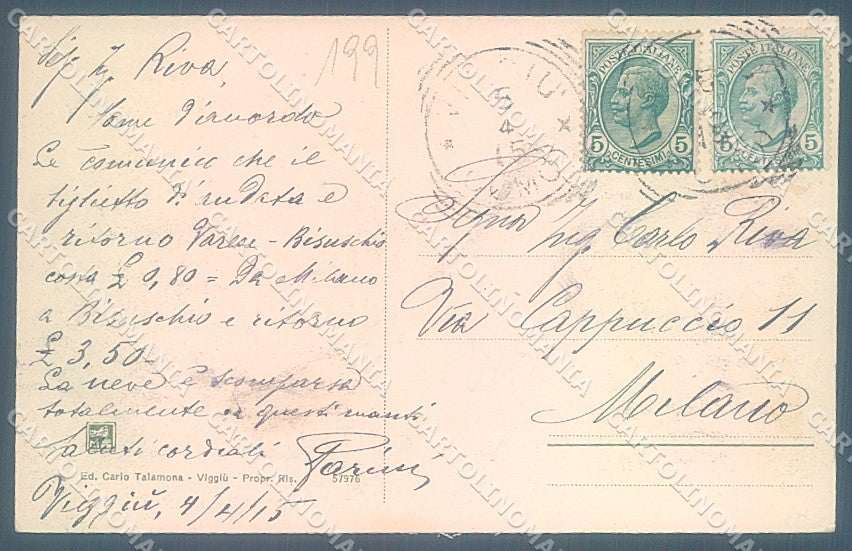 199
Sig. Ig. Riva,
Come d'accordo
Le comunico che il
biglietto d'andata e
ritorno Varese - Bisuschio
costa £ 0,80 = Da Milano
a Bisuschio e ritorno
£ 3,50-
La neve è scomparsa
totalmente questi monti
Saluti cordiali Parini
Ed. Carlo Talamona - Viggiù - Propr. Ris. 57976
Viggiù, 4/4/15
POSTE ITALIANE
5 5
CENTESIMI
POSTE ITALIANE
5 5
CENTESIMI
VIGGIU'
4
15
COMO
Ing. Carlo Riva
Via Cappuccio 11
Milano
CARTOLINOMANIA